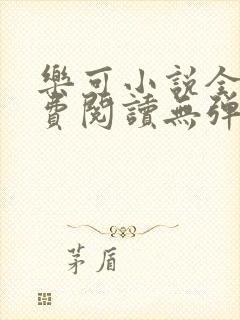 樂可小說全
費閱讀無彈
茅盾